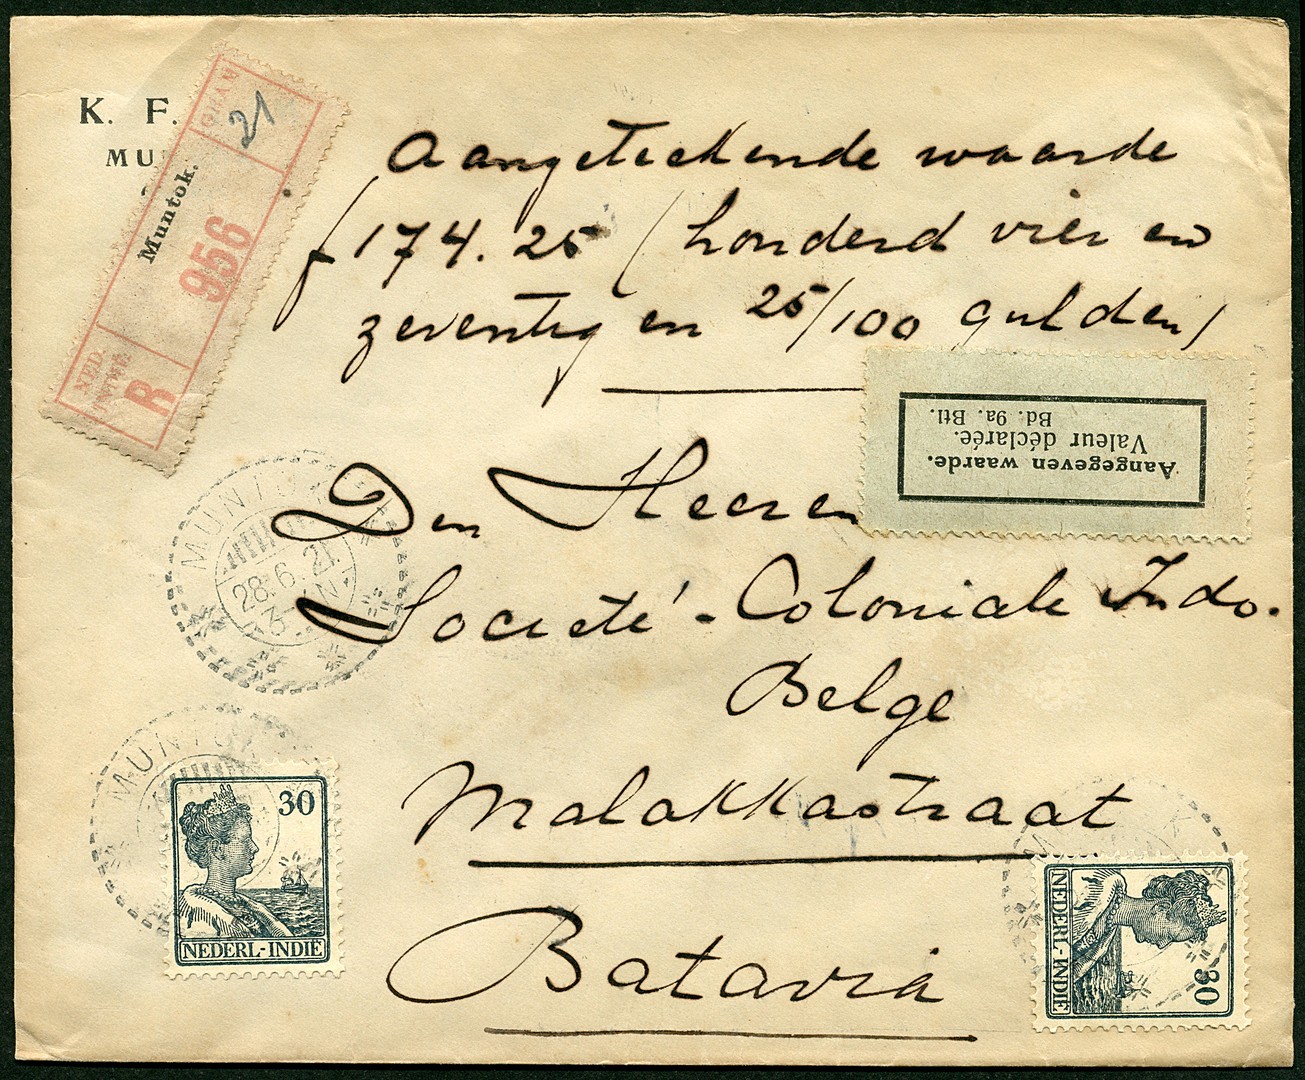 K. F.
MU
GRAM
21
Muntok.
956
NED.
INDIË.
R
Aangeteekende waarde
f 174.25 (honderd vier en
zeventig en 25/100 gulden)
Aangegeven waarde.
Valeur déclarée.
Bd. 9a. Btl.
Den Heeren
Societé-Coloniale Indo.
Belge
Malakkastraat
Batavia
MUNTOK
28.6.21
MUNTOK
30
NEDERL-INDIE
30
NEDERL-INDIE